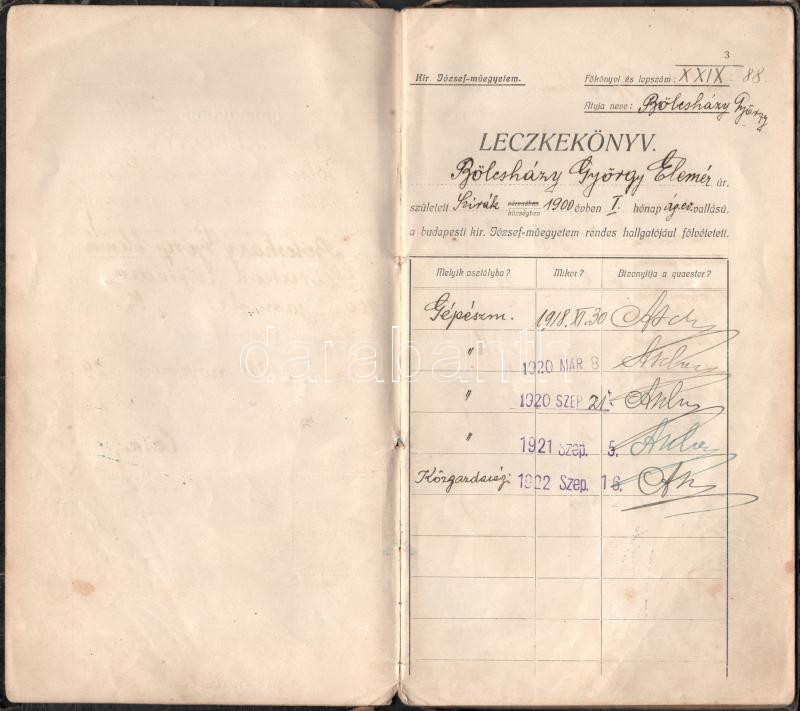 3
Kir. József-műegyetem.
Főkönyvi és lapszám: XXIX. 88.
Atyja neve: Bölcsházy György
LECZKEKÖNYV.
Bölcsházy György Elemér úr,
született Szirák városban községben 1900 évben I. hónap ág. ev. vallású,
a budapesti kir. József-műegyetem rendes hallgatójául fölvétetett.
Melyik osztályba? Mikor? Bizonyítja a quaestor?
Gépészm. 1918. XI. 30
" 1920 MÁR. 8
" 1920 SZEP. 21.
" 1921 Szep. 5.
Közgazdasági 1922 Szep. 16.
darabanth